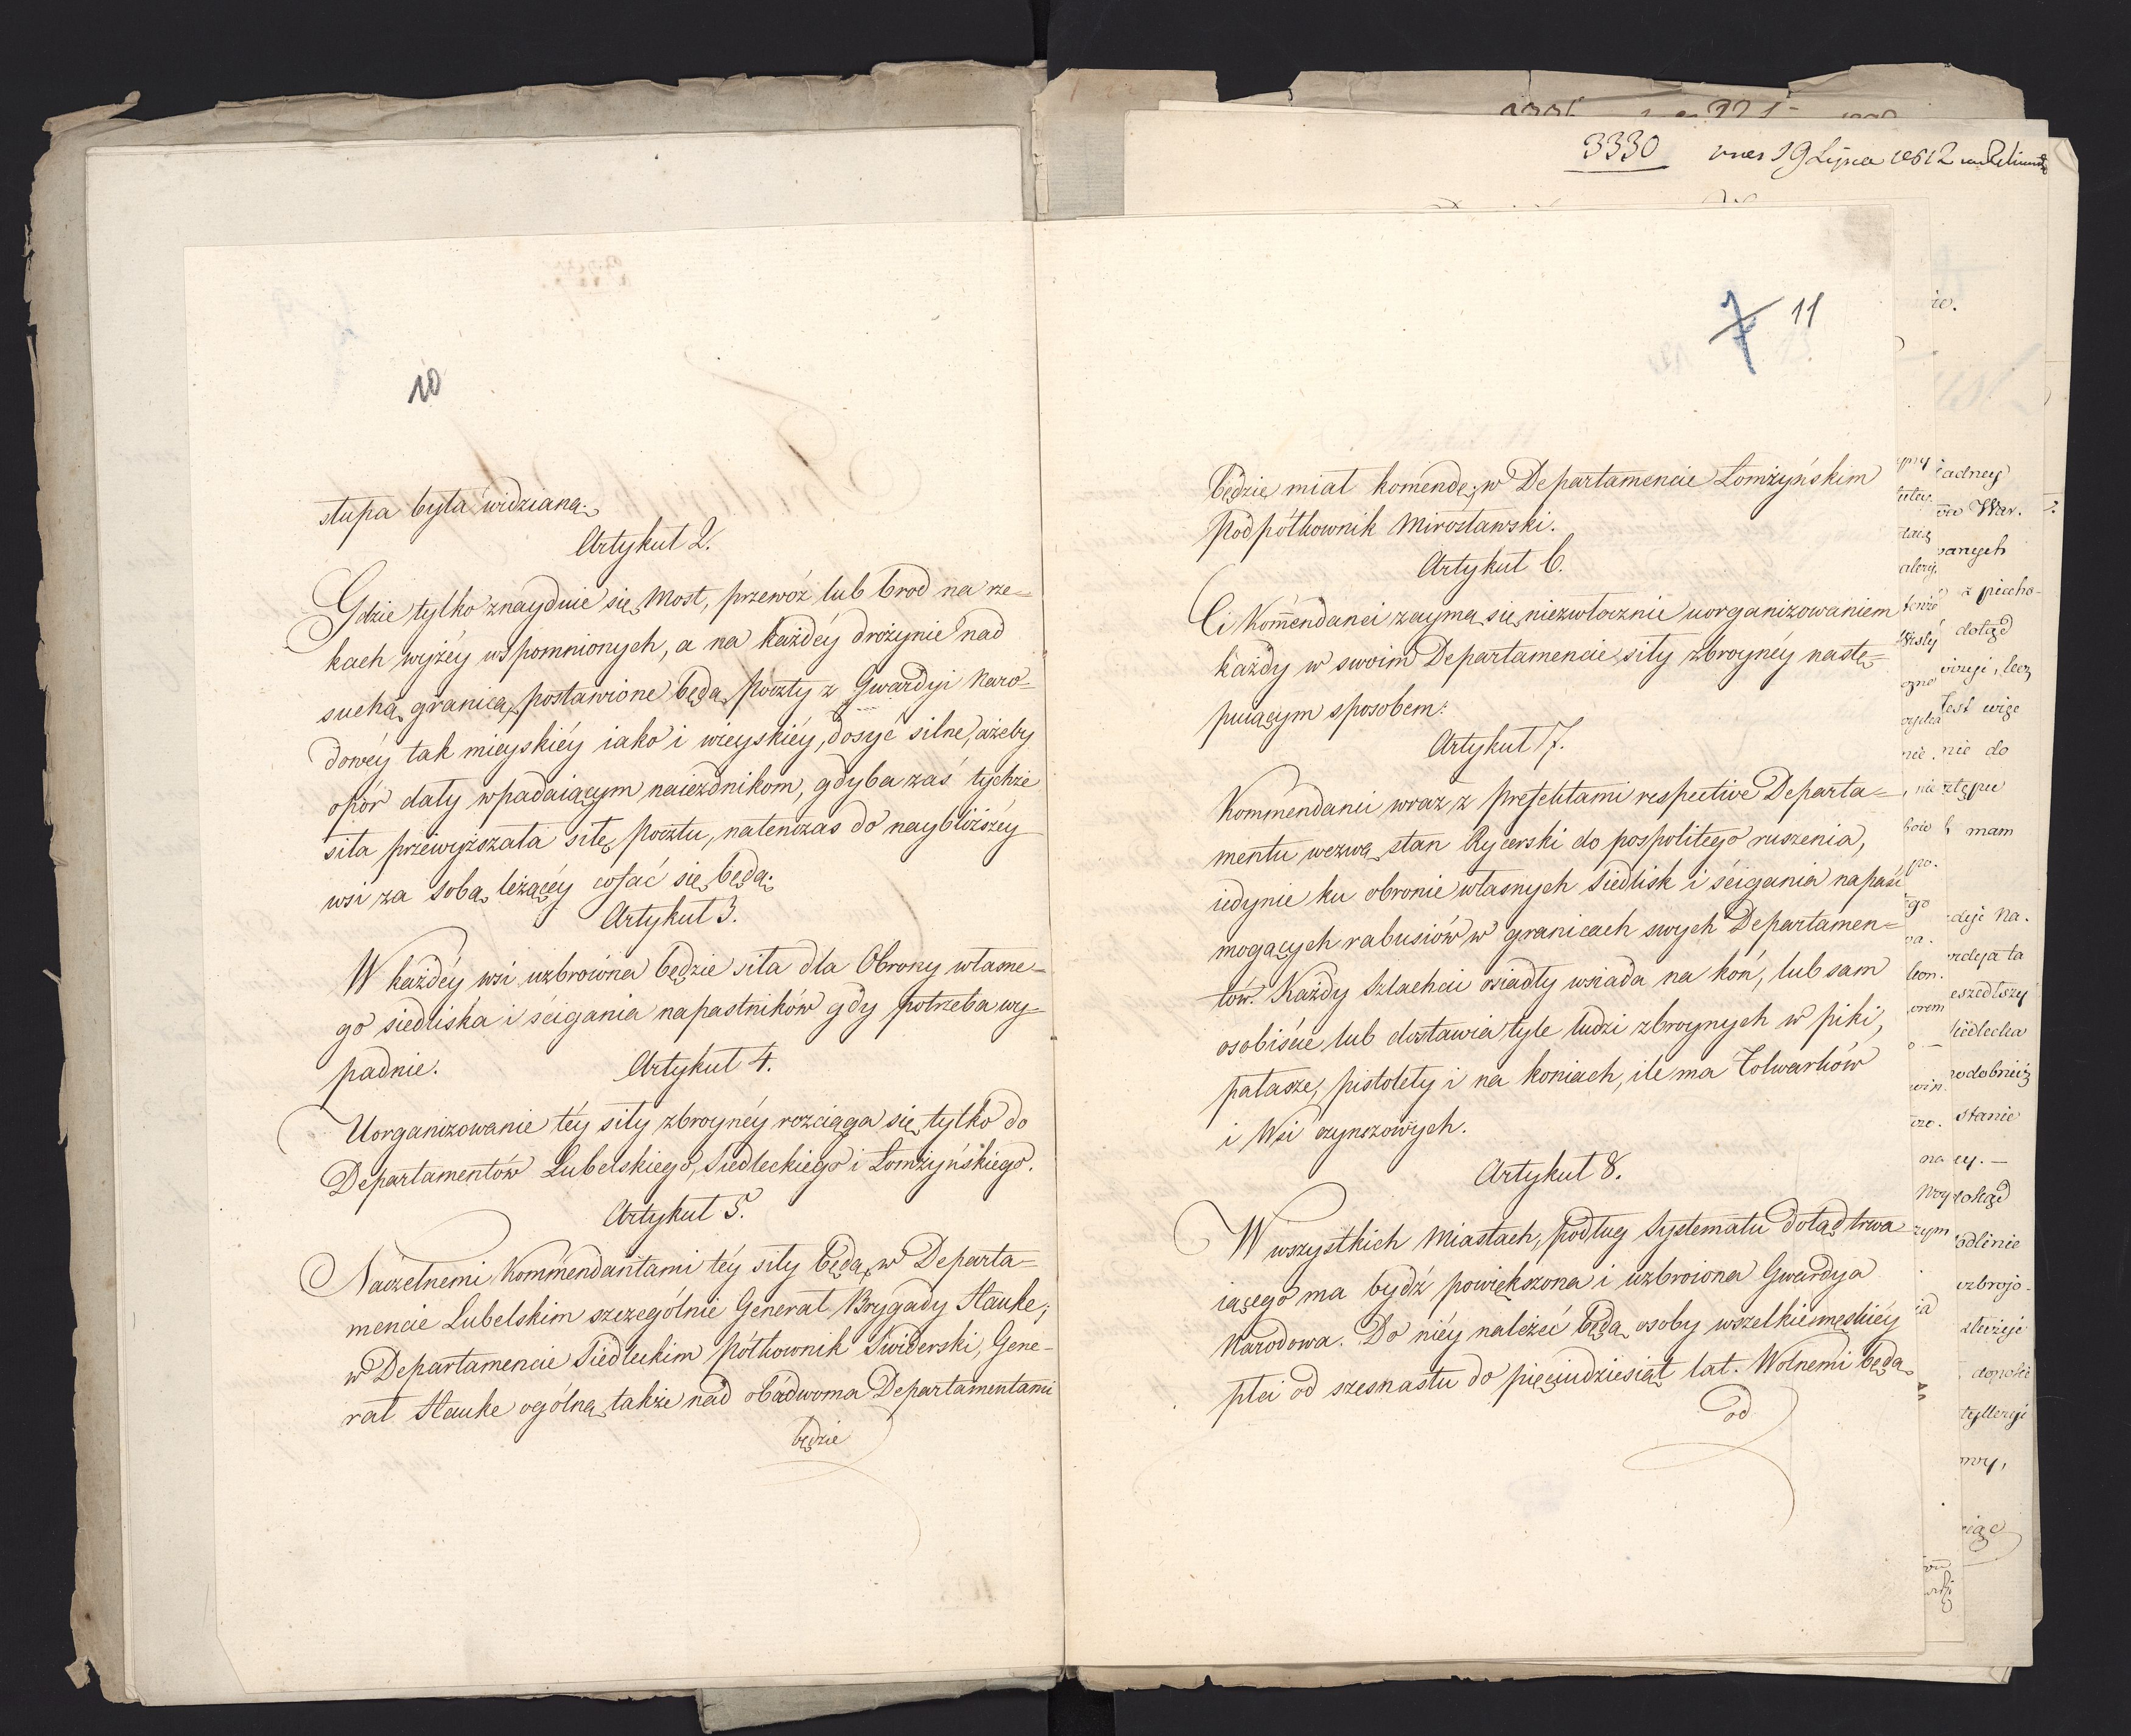 10
stupa była widzianą.
Artykuł 2.
Gdzie tylko znayduie się Most, przewóz lub brod na rze-
kach wyżéy wspomnionych, a na każdéy drożynie nad
suchą granicą, postawione będą Poczty z Gwardyi Naro-
dowéy tak mieyskiéy iako i wieyskiéy, dosyć silne, ażeby
opór dały wpadaiącym naiezdnikom, gdyba zaś tychże
siła przewyższała siłę Pocztu, natenczas do naybliższéy
wsi za sobą leżącéy cofać się będą.
Artykuł 3.
W każdéy wsi uzbroiona będzie siła dla Obrony własne-
go siedliska i ścigania napastników gdy potrzeba wy-
padnie.
Artykuł 4.
Uorganizowanie téy siły zbroynéy rozciąga się tylko do
Departamentów Lubelskiego, Siedleckiego i Łomżyńskiego.
Artykuł 5.
Naczelnemi Kommendantami téy siły będą, w Departa-
mencie Lubelskim szczególnie Generał Brygady Hauke;
w Departamencie Siedleckim Półkownik Świderski, Gene-
rał Hauke ogólną także nad obadwoma Departamentami
będzie
3330
19 Lipca 1812
7 11
będzie miał komendę; w Departamencie Łomżyńskim
Podpółkownik Mirosławski.
Artykuł 6.
Ci Kommendanci zaymą się niezwłocznie uorganizowaniem
każdy w swoim Departamencie siły zbroynéy nastę-
puiącym sposobem:
Artykuł 7.
Kommendanci wraz z Prefektami respective Departa-
mentu wezwą stan Rycerski do pospolitego ruszenia,
iedynie ku obronie własnych siedlisk i ścigania napaść
mogących rabusiów w granicach swych Departamen-
tów. Każdy Szlachcic osiadły wsiada na koń, lub sam
osobiście lub dostawia tyle ludzi zbroynych w piki,
pałasze, pistolety i na koniach, ile ma Folwarków
i Wsi czynszowych.
Artykuł 8.
W wszystkich Miastach, podług Systematu dotąd trwa-
iącego ma bydź powiększona i uzbroiona Gwardya
Narodowa. Do niéy należeć będą osoby wszelkie męskiéy
płci od szesnastu do pięciudziesiąt lat. Wolnemi będą
od